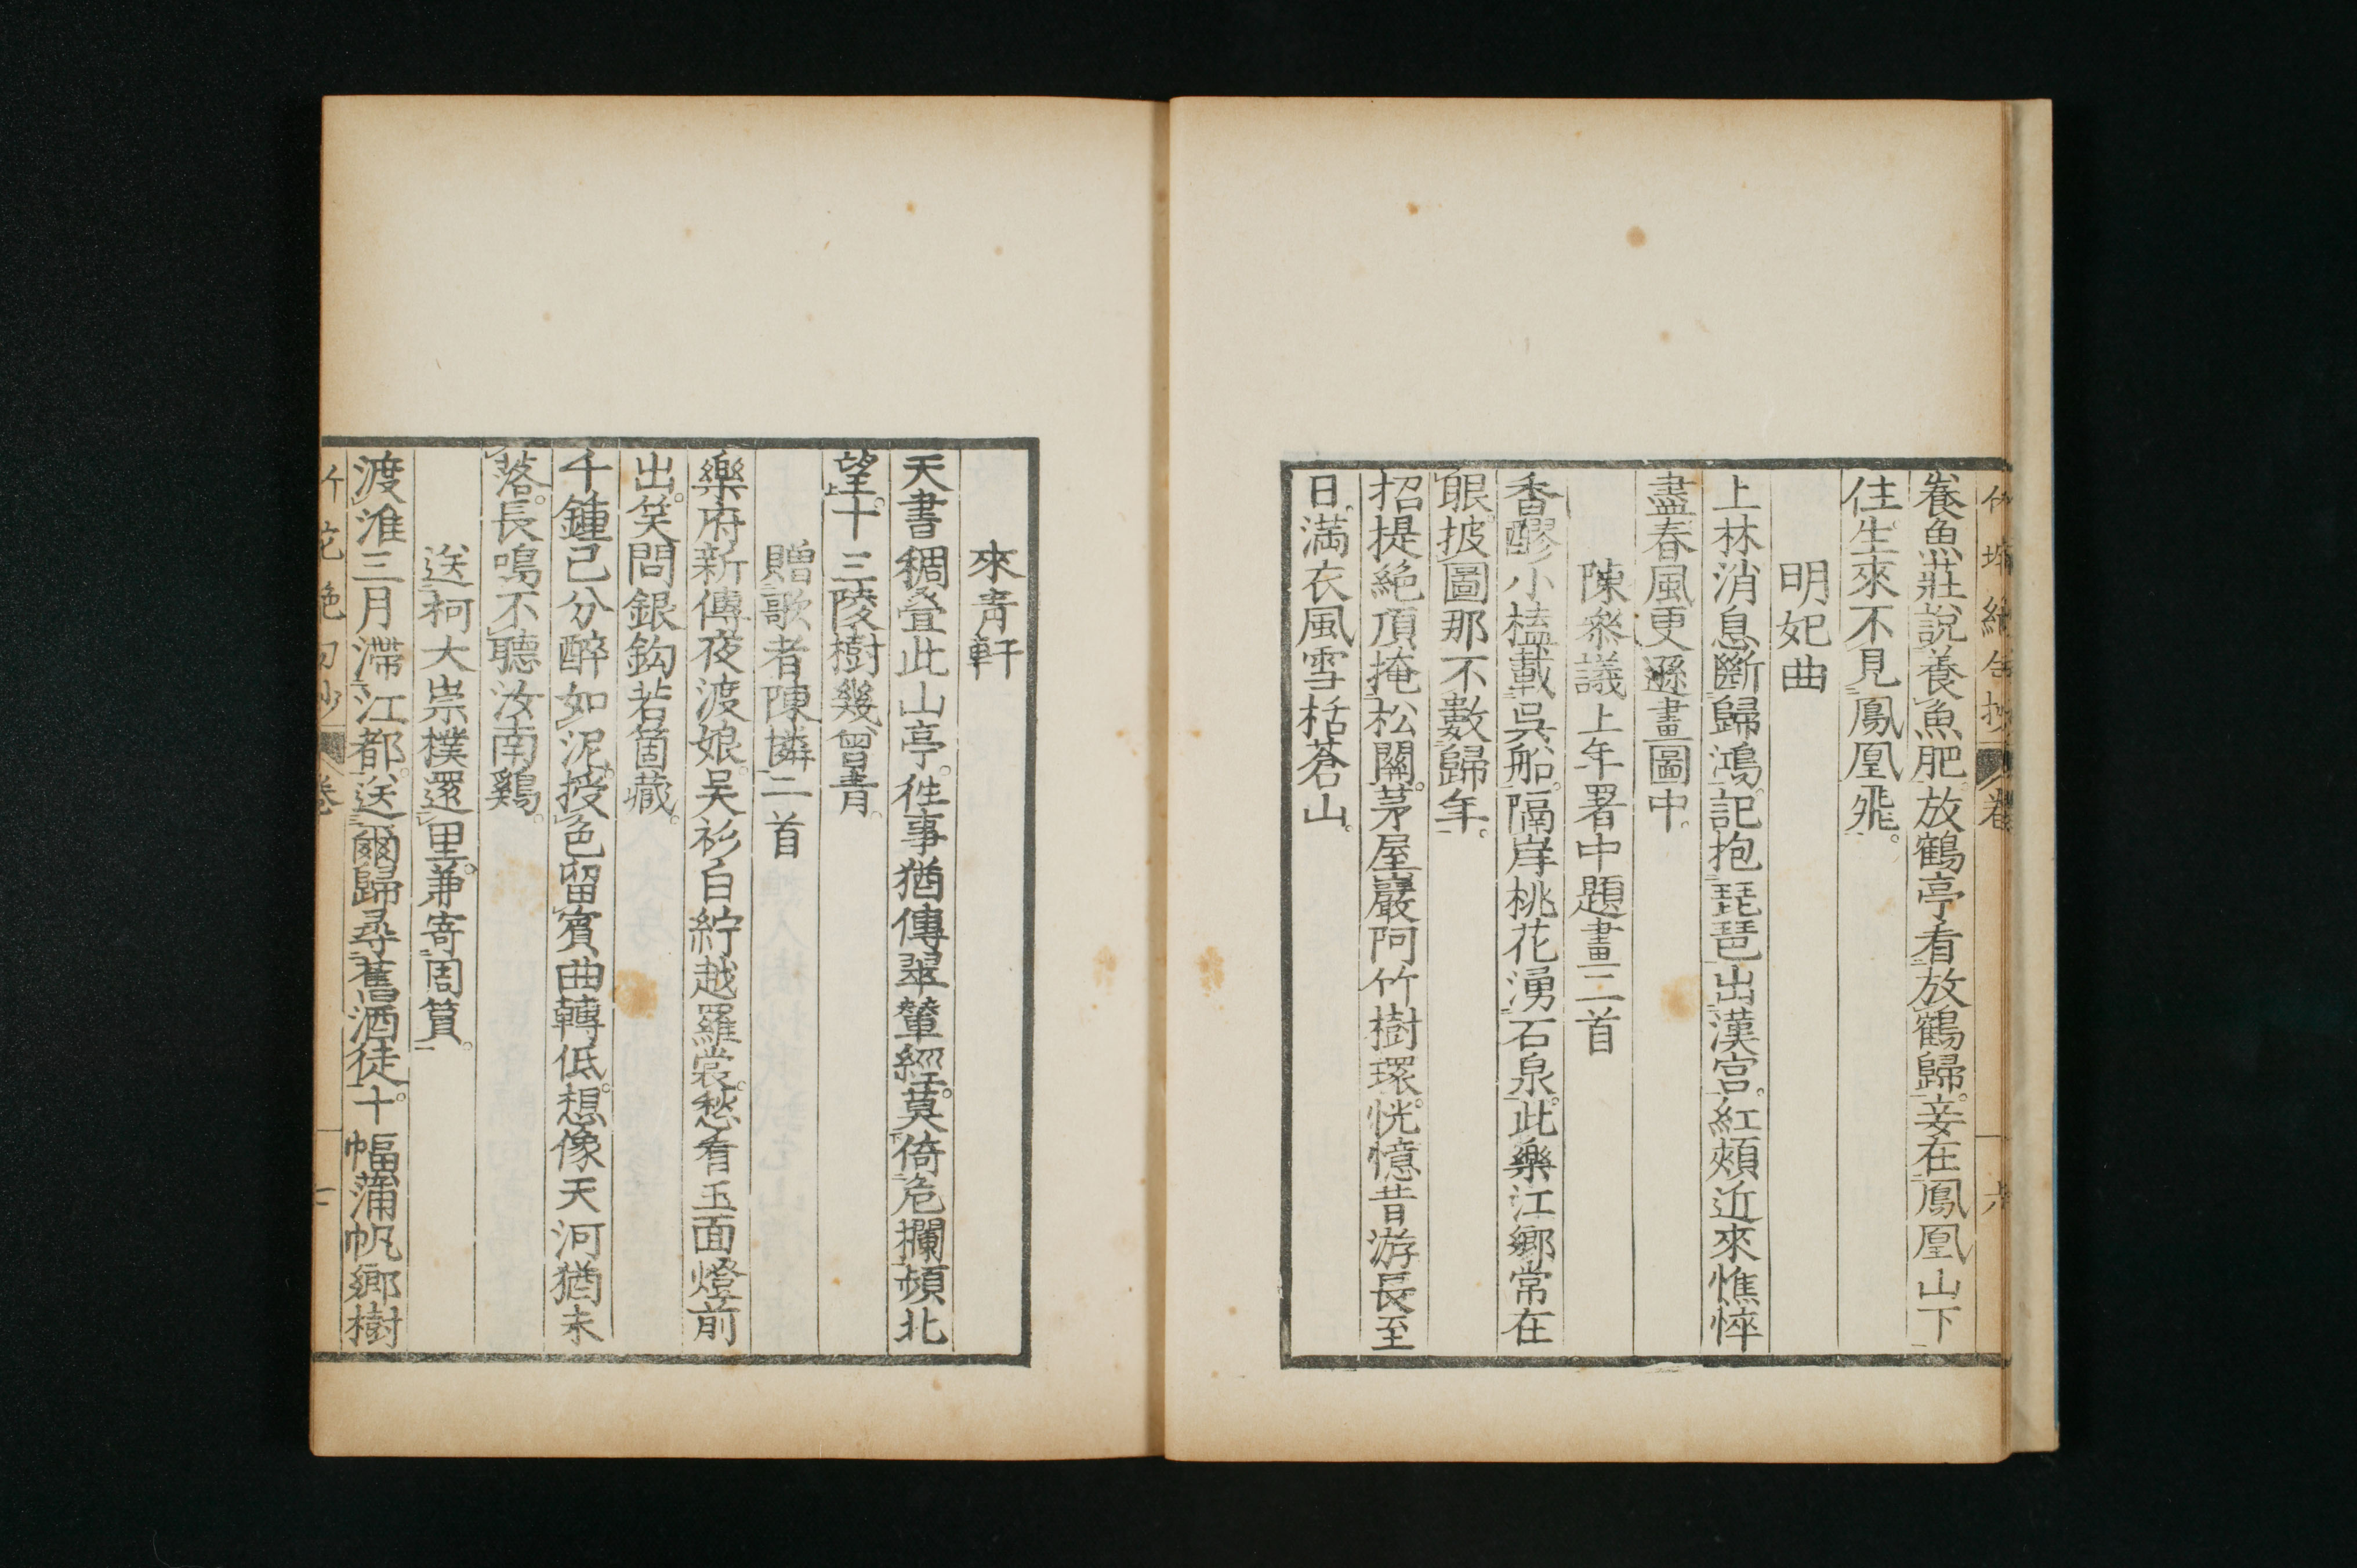 養魚莊說養魚肥。放鶴亭看放鶴歸。妾在鳳凰山下
住。生來不見鳳凰飛。
明妃曲
上林消息斷歸鴻。記抱琵琶出漢宮。紅頰近來憔悴
盡。春風更遜畫圖中。
陳叅議上年署中題畫二首
香醪小榼載吳船。隔岸桃花湧石泉。此樂江鄉常在
眼。披圖那不數歸年。
招提絕頂掩松關。茅屋巖阿竹樹環。恍憶昔游長至
日。滿衣風雪栝蒼山。
來青軒
天書稠疊此山亭。徃事猶傳翠輦經。莫倚危欄頻北
望。十三陵樹幾曾青。
贈歌者陳憐二首
樂府新傳夜渡娘。吳衫白紵越羅裳。愁看玉面燈前
出。笑問銀鈎若箇藏。
千鍾已分醉如泥。授色留賓曲轉低。想像天河猶未
落。長鳴不聽汝南鷄。
送柯大崇樸還里。兼寄周篔。
渡淮三月滯江都。送爾歸尋舊酒徒。十幅蒲帆鄉樹